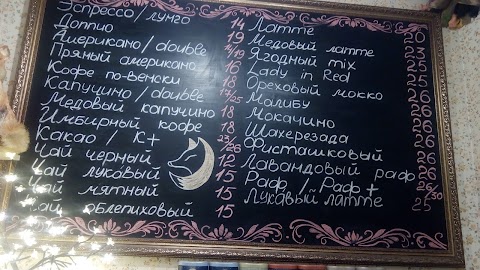 Эспрессо/лунго 14
Доппио 19
Американо/double 14/19
Пряный американо 16
Кофе по-венски 18
Капучино/double 14/25
Медовый капучино 18
Имбирный кофе 18
Какао / К+ 23/26
Чай черный 12
Чай луковый 15
Чай мятный 15
Чай облепиховый 15
Латте 20
Медовый латте 23
Ягодный mix 25
Lady in Red 25
Ореховый мокко 26
Малибу 26
Мокачино 26
Шахерезада 26
Фисташковый 26
Лавандовый раф 26
Раф / Раф + 26/30
Лукавый латте 25